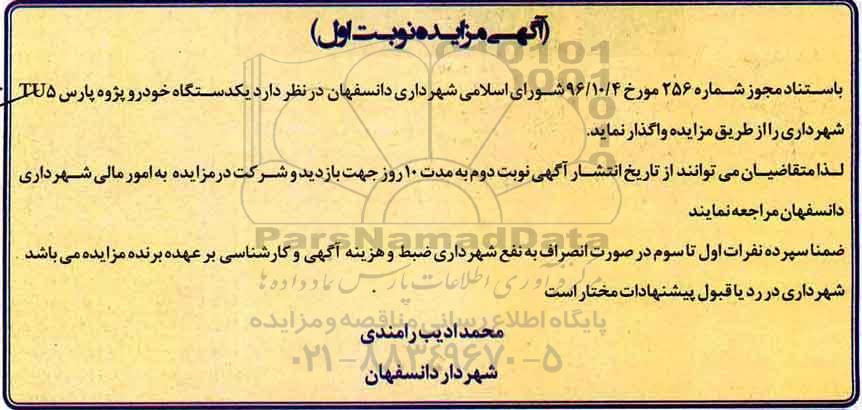 (آگهی مزایده نوبت اول)
باستناد مجوز شماره ۲۵۶ مورخ ۹۶/۱۰/۴ شورای اسلامی شهرداری دانسفهان در نظر دارد یکدستگاه خودرو پژوه پارس TU۵
شهرداری را از طریق مزایده واگذار نماید.
لذا متقاضیان می توانند از تاریخ انتشار آگهی نوبت دوم به مدت ۱۰ روز جهت بازدید و شرکت در مزایده به امور مالی شهرداری
دانسفهان مراجعه نمایند
ParsNamadData
ضمنا سپرده نفرات اول تا سوم در صورت انصراف به نفع شهرداری ضبط و هزینه آگهی و کارشناسی بر عهده برنده مزایده می باشد
مرکز فرآوری اطلاعات پارس نماد داده ها
شهرداری در رد یا قبول پیشنهادات مختار است
پایگاه اطلاع رسانی مناقصه و مزایده
محمد ادیب رامندی
۰۲۱-۸۸۳۴۹۶۷۰-۵
شهردار دانسفهان